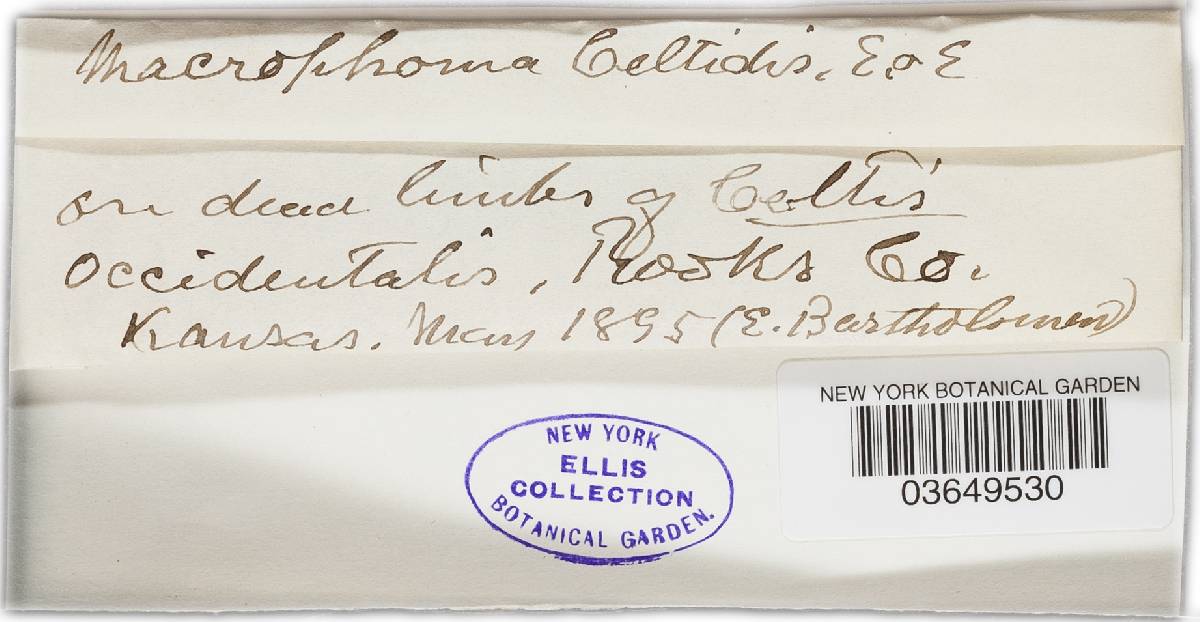 Macrophoma Celtidis, E. & E
on dead limbs of Celtis
occidentalis, Rooks Co.
Kansas. May 1895 (E. Bartholomew)
NEW YORK
ELLIS
COLLECTION
BOTANICAL GARDEN.
NEW YORK BOTANICAL GARDEN
03649530